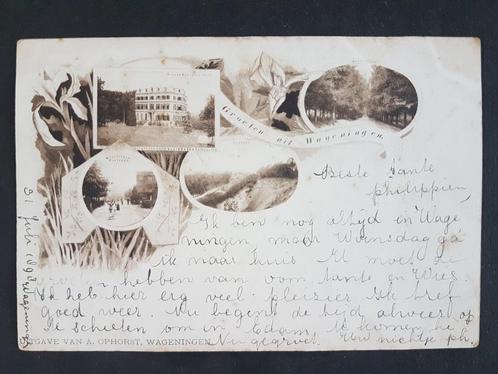 Groeten uit Wageningen.
31 Juli 1898 Wageningen
Beste Tante
Philippien,
Ik ben nog altijd in Wage
ningen maar Woensdag ga
ik naar huis. U moet de
hebben van oom, tante en Wies.
Ik heb hier erg veel pleizier. Ik tref
goed weer. Nu begint de tijd alweer op
te schieten om in Edam, te komen he
Nu gegroet. Uw nichtje Ph.
UITGAVE VAN A. OPHORST, WAGENINGEN